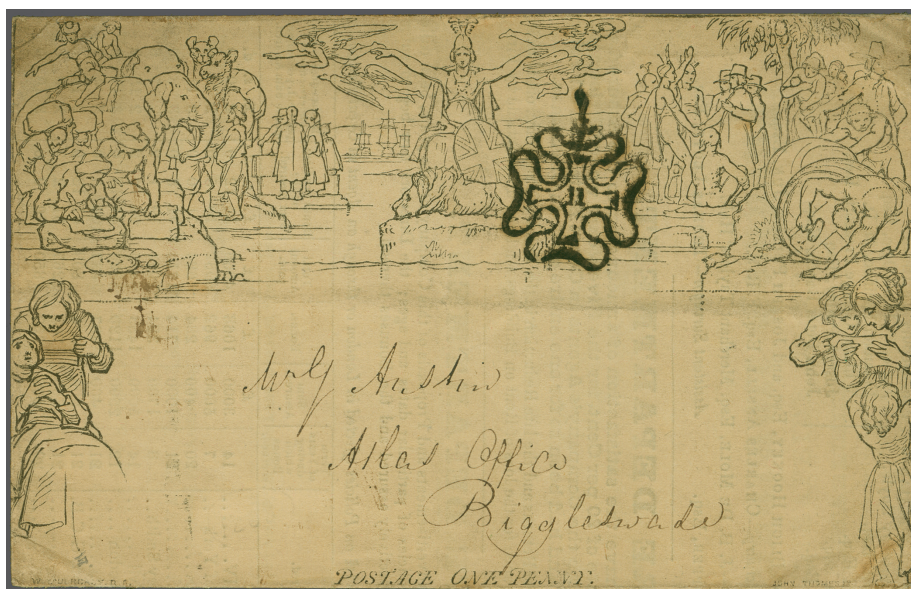 Mr G Austin
Atlas Office
Biggleswade
POSTAGE ONE PENNY.